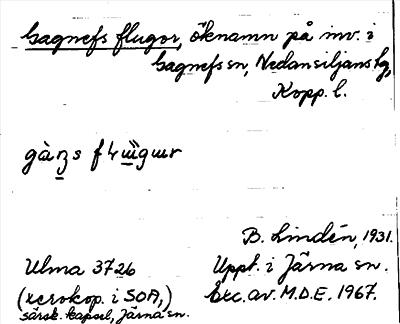 Gagnefs flugor, öknamn på inv. i
Gagnefs sn, Nedansiljans tg,
Kopp. l.
B. Lindén, 1931.
Ulma 3726
Uppt. i Järna sn.
(xerokop. i SOA,)
Exc. av. M.D.E. 1967.
särsk. kapsel, Järna sn.